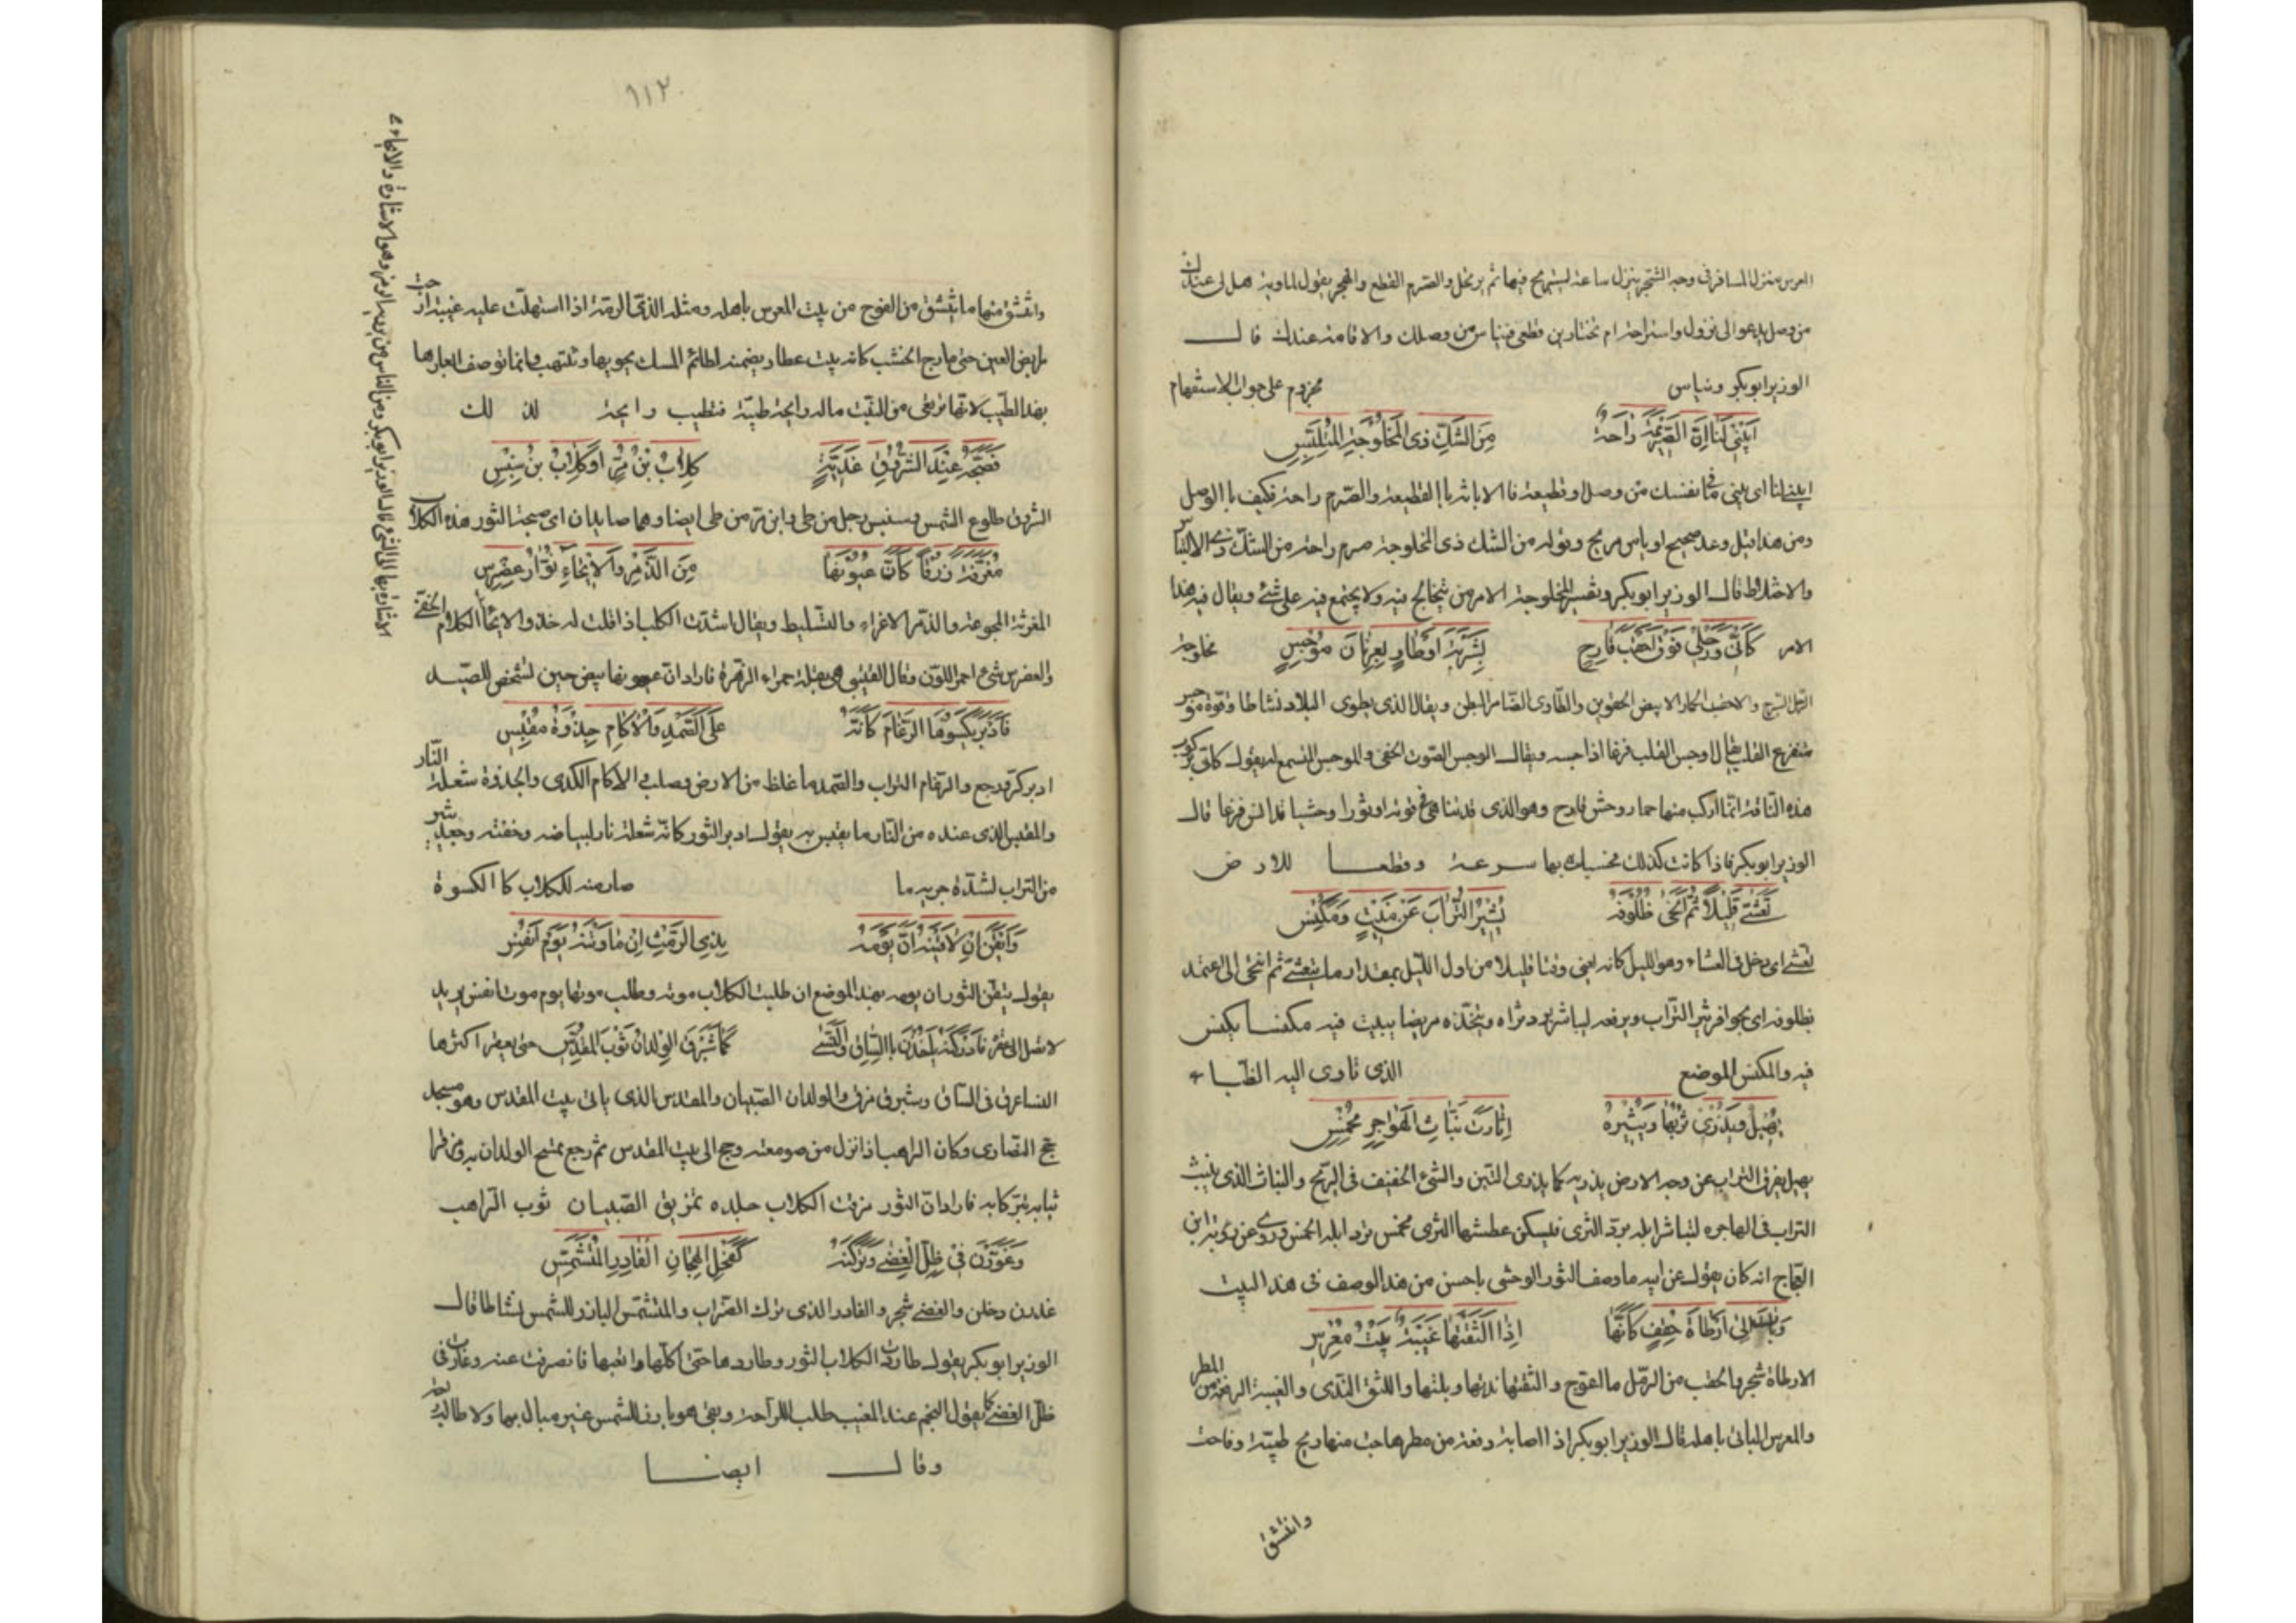 العرس منزل المسافر فى وجه الشجر ينزل ساعة ليستريح فيها ثم يرتحل والصرم القطع والهجر يقول لماوية هل لى عندك
من وصل يدعوا الى نزول واستراحة ام تختارين قطعى فنياس من وصلك والاقامة عندك قال
الوزير ابو بكر ونياس مجزوم على جواب الاستفهام
ابيني لنا ان الصريمة راحة من الشك ذى المخلوجة المتلبس
ابيني لنا اى بيني ما فى نفسك من وصل او قطيعة فالابانة بالقطيعة والصرم راحة فكيف باالوصل
ومن هذا قيل وعد صحيح او ياس مريح وقوله من الشك ذى المخلوجة صرم راحة من الشك ذى الالتباس
والاختلاط قال الوزير ابو بكر وتفسير المخلوجة الامر من يتخالج فيه ولا يجتمع فيه على شئ ويقال فيه هذا
الامر مخلوجة كانى ورحلى فوق احقب قارح بشربة او طاو بعرنان موجس
الرحل السرج والاحقب الحمار الابيض الحقوين والطاوى الضامر البطن ويقال الذى يطوى البلاد نشاطا وقوة موجس
متفزع القلب يقال اوجس القلب فزعا اذا احسه ويقال الوجس الصوت الخفى والموجس المتسمع له يقول كانى بركوب
هذه الناقة انما اركب منها حمار وحش قارح وهو الذى قد تناهى فى قوته او ثورا وحشيا قد انس فزعا قال
الوزير ابو بكر فاذا كانت كذلك فحسبك بها سرعة وقطعا للارض
تعشى قليلا ثم انحى ظلوفه يثير التراب عن مبيت ومكنس
تعشى اى دخل فى العشاء وهو الليل كانه يعنى وقتا قليلا من اول الليل بمقدار ما يتعشى ثم انحى اى اعتمد
بظلوفه اى بحوافر يثير التراب ويرفعه ليباشر برد ثراه ويتخذه مربضا يبيت فيه مكنسا يكنس
فيه والمكنس الموضع الذى تاوى اليه الظباء
يهيل ويذرى تربها ويثيره اثارة نباث الهواجر مخمس
يهيل يفرق التراب عن وجه الارض يذريه كما يذرى التبن والشئ الخفيف فى الريح والنباث الذى ينبث
التراب فى الهاجره لتباشر ابله برد الثرى فيسكن عطشها الثرى مخمس ترد ابله الخمس وروى عن روبة ابن
العجاج انه كان يقول عن ابيه ما وصف الثور الوحشى باحسن من هذا الوصف فى هذا البيت
وبات الى ارطاة حقف كانها اذا الثقتها غبية بيت معرس
الارطاة شجر والحقف من الرمل ما اعوج والثقتها ندتها وبلتها واللثق الندى والغبية الدفعة من المطر
والمعرس البانى باهله قال الوزير ابو بكر اذا اصابته دفعة من مطرها جت منها ريح طيبة وفاحت
وانتشق
١١٢
وانتشق منها ما ينتشق من الفوح من بيت المعرس باهله ومثله الذى الرمة اذا استهلت عليه غبية ارجت
مرابض العين حتى يارج الخشب كانه بيت عطار يضمنه لطائم المسك يحويها وتنتهب وانما توصف ابعارها
بهذا الطيب لانها ترعى من النبت ماله رايحة طيبة فتطيب رايحة لذلك
فصبحه عند الشروق غدية كلاب بن مر او كلاب بن سنبس
الشروق طلوع الشمس وسنبس رجل من طى وابن مر من طى ايضا وهما صايدان اى صبحت الثور هذه الكلاب
مغرثة زرقا كان عيونها من الذمر والايحاء نوار عضرس
المغرثة المجوعة والذمر الاغراء والتسليط ويقال اشديت الكلب اذا قلت له خذ والايحا الكلام الخفى
والعضرس شئ احمر اللون وقال القتيبى هى بقلة حمراء الزهرة فاراد ان عيونها تبيض حين تشخص للصيد
فادبر يكسوها الرغام كانه على الصمد والاكام جذوة مقبس
ادبر كر ورجع والرغام التراب والصمد ما غلظ من الارض وصلب والاكام الكدى والجذوة شعلة النار
والمقبس الذى عنده من النار ما يقتبس به يقول ادبر الثور كانه شعلة نار لبياضه وخفته وجعل يثير
من التراب لشدة جريه ما صار منه للكلاب كا الكسوة
وايقن ان لاقينه ان يومه بذى الرمث ان ماوتنه يوم انفس
يقول تيقن الثور ان يومه بهذا الموضع ان طلبت الكلاب موته وطلب موتها يوم موت انفس يريد
فادركنه ياخذن باالساق والنسا كما شبرق الولدان ثوب المقدس حتى يعقر اكثرها
النسا عرق فى الساق وشبرق مزق والولدان الصبيان والمقدس الذى ياتى بيت المقدس وهو مسجد
حج النصارى وكان الراهب اذا نزل من صومعته وحج الى بيت المقدس ثم رجع تمسح الولدان به ومزقوا
ثيابه تبركا به فاراد ان الثور مزقت الكلاب جلده تمزيق الصبيان ثوب الراهب
وغورن فى ظل الغضى وتركنه كفحل الهجان الفادر المتشمس
غورن دخلن والغضى شجر والفادر الذى ترك الضراب والمتشمس البارز للشمس نشاطا قال
الوزير ابو بكر يقول طاردت الكلاب الثور وطاردها حتى اكلها واتعبها فانصرفت عنه وغارت فى
ظل الغضى كما يقول النجم عند المغيب طلب للراحة وبقى هو بارز للشمس غير مبال بها ولا طالبه
وقال ايضا
الاشارة بها الى الشئ قال الوزير ابو بكر ومن الناس من يرويه الرمز وهو الاشارة والايحاء